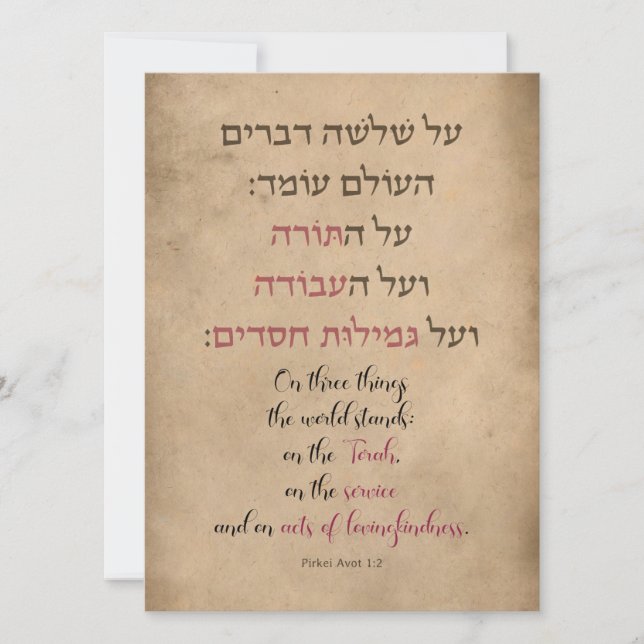 על שׁלשׁה דברים
העוֹלם עוֹמד:
על התּוֹרה
ועל העבוֹדה
ועל גּמילוּת חסדים:
On three things
the world stands:
on the Torah,
on the service
and on acts of lovingkindness.
Pirkei Avot 1:2